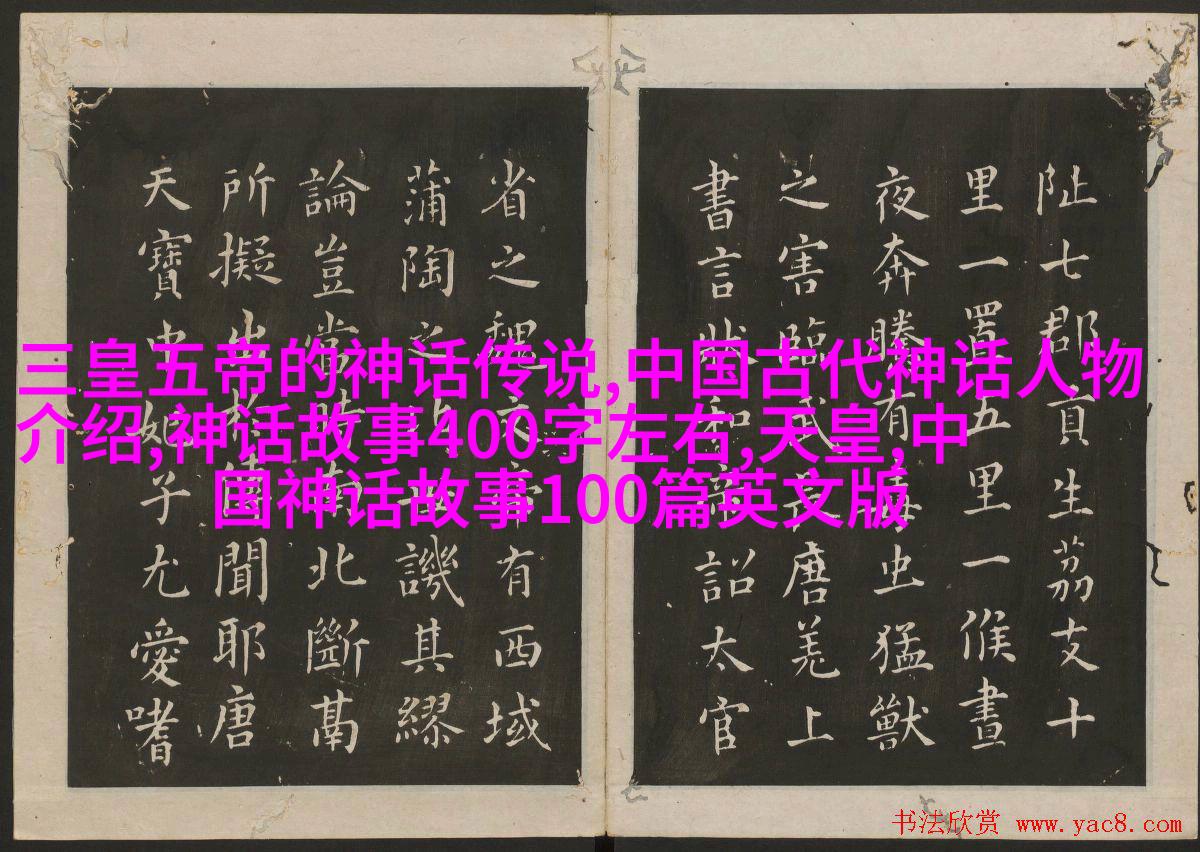 阯七郡貢生茘支十
里一置五里一候晝
夜奔騰有毒虫猛獸
之害臨武長唐羌上
書言狀和帝詔太官
省之魏文帝有西域
蒲陶之比世譏其繆
論豈當時南北斷
所擬出於傳聞耶唐
天寶中妃子尤愛嗜
三皇五帝的神话传说,中国古代神话人物
介绍,神话故事400字左右,天皇,中
国神话故事100篇英文版
书法欣赏 www.yac8.com